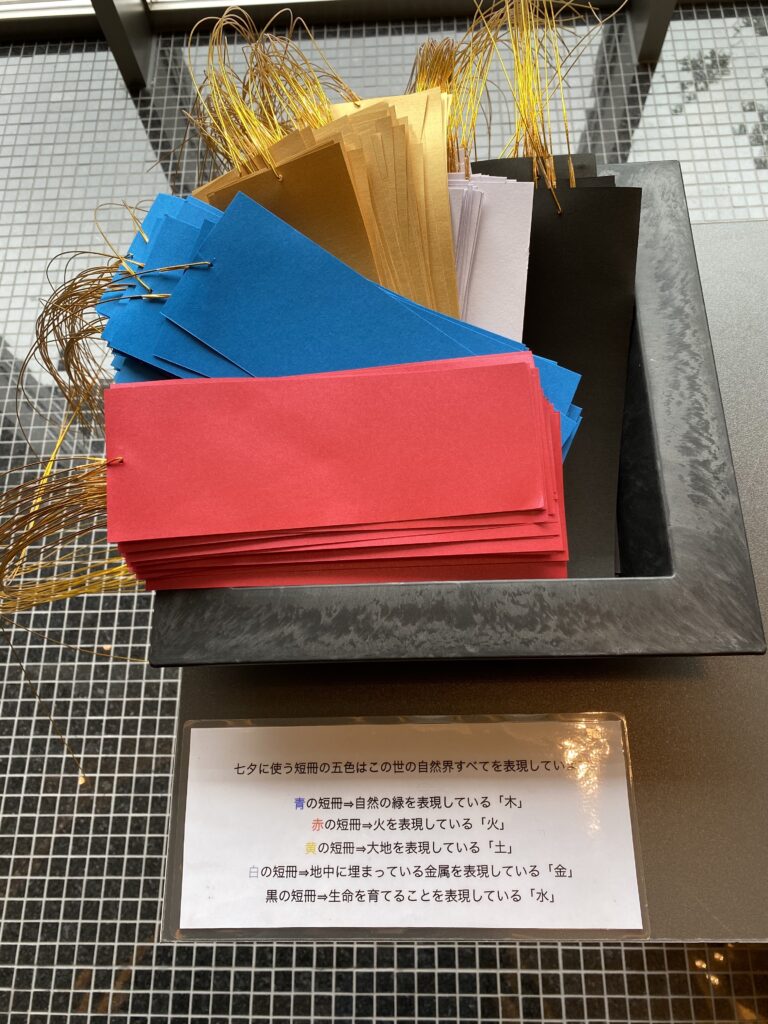 七夕に使う短冊の五色はこの世の自然界すべてを表現してい
青の短冊⇒自然の緑を表現している「木」
赤の短冊⇒火を表現している「火」
黄の短冊⇒大地を表現している「土」
白の短冊⇒地中に埋まっている金属を表現している「金」
黒の短冊⇒生命を育てることを表現している「水」